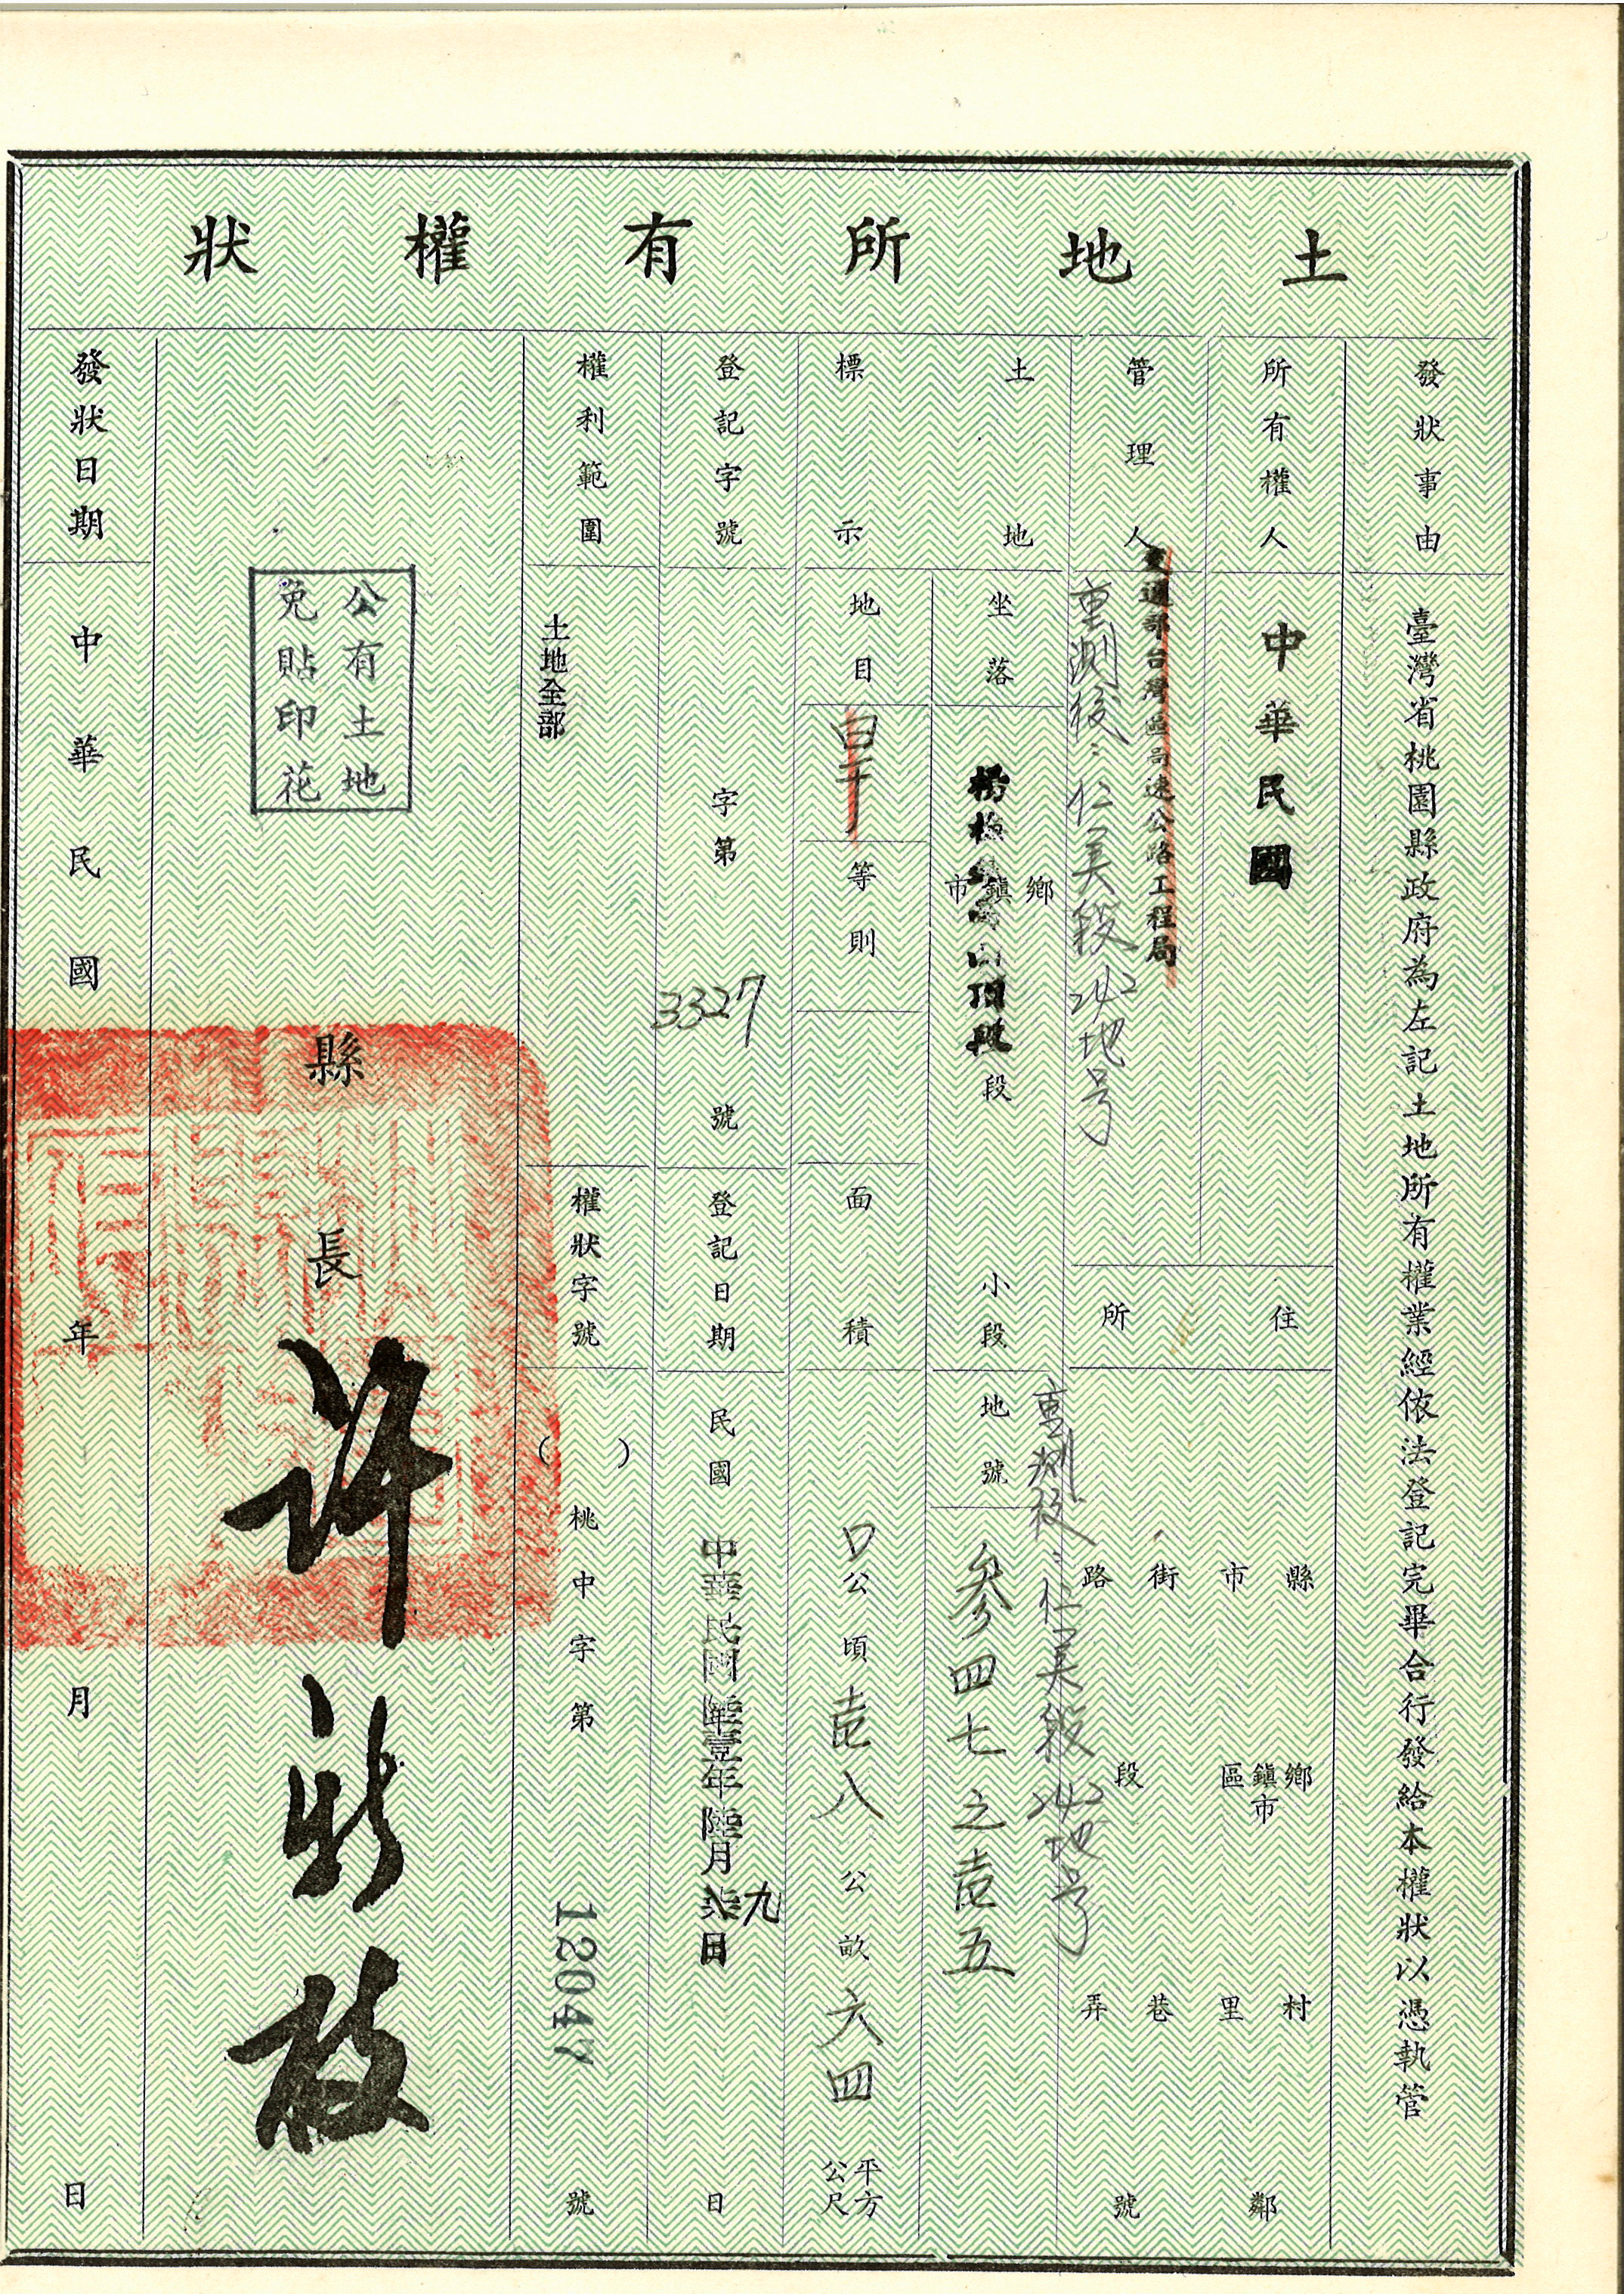 土地所有權狀
發狀事由
臺灣省桃園縣政府為左記土地所有權業經依法登記完畢合行發給本權狀以憑執管
所有權人
中華民國
管理人
交通部台灣區高速公路工程局
重測後:仁美段242地号
住所
縣市街路
鄉鎮市區
段
村里巷弄
鄰
號
土地標示
坐落
楊梅鎮
山頂段
鄉鎮市
段
小段
地號
參四七之壹五
重測後:仁美段242地号
地目
等則
面積
0公頃壹八公畝六四平方公尺
登記字號
字第3327號
登記日期
民國
中華民國陸壹年陸月
九
日
日
權利範圍
土地全部
權狀字號
( )桃中字第12047號
公有土地
免貼印花
縣長許新枝
發狀日期
中華民國年月日